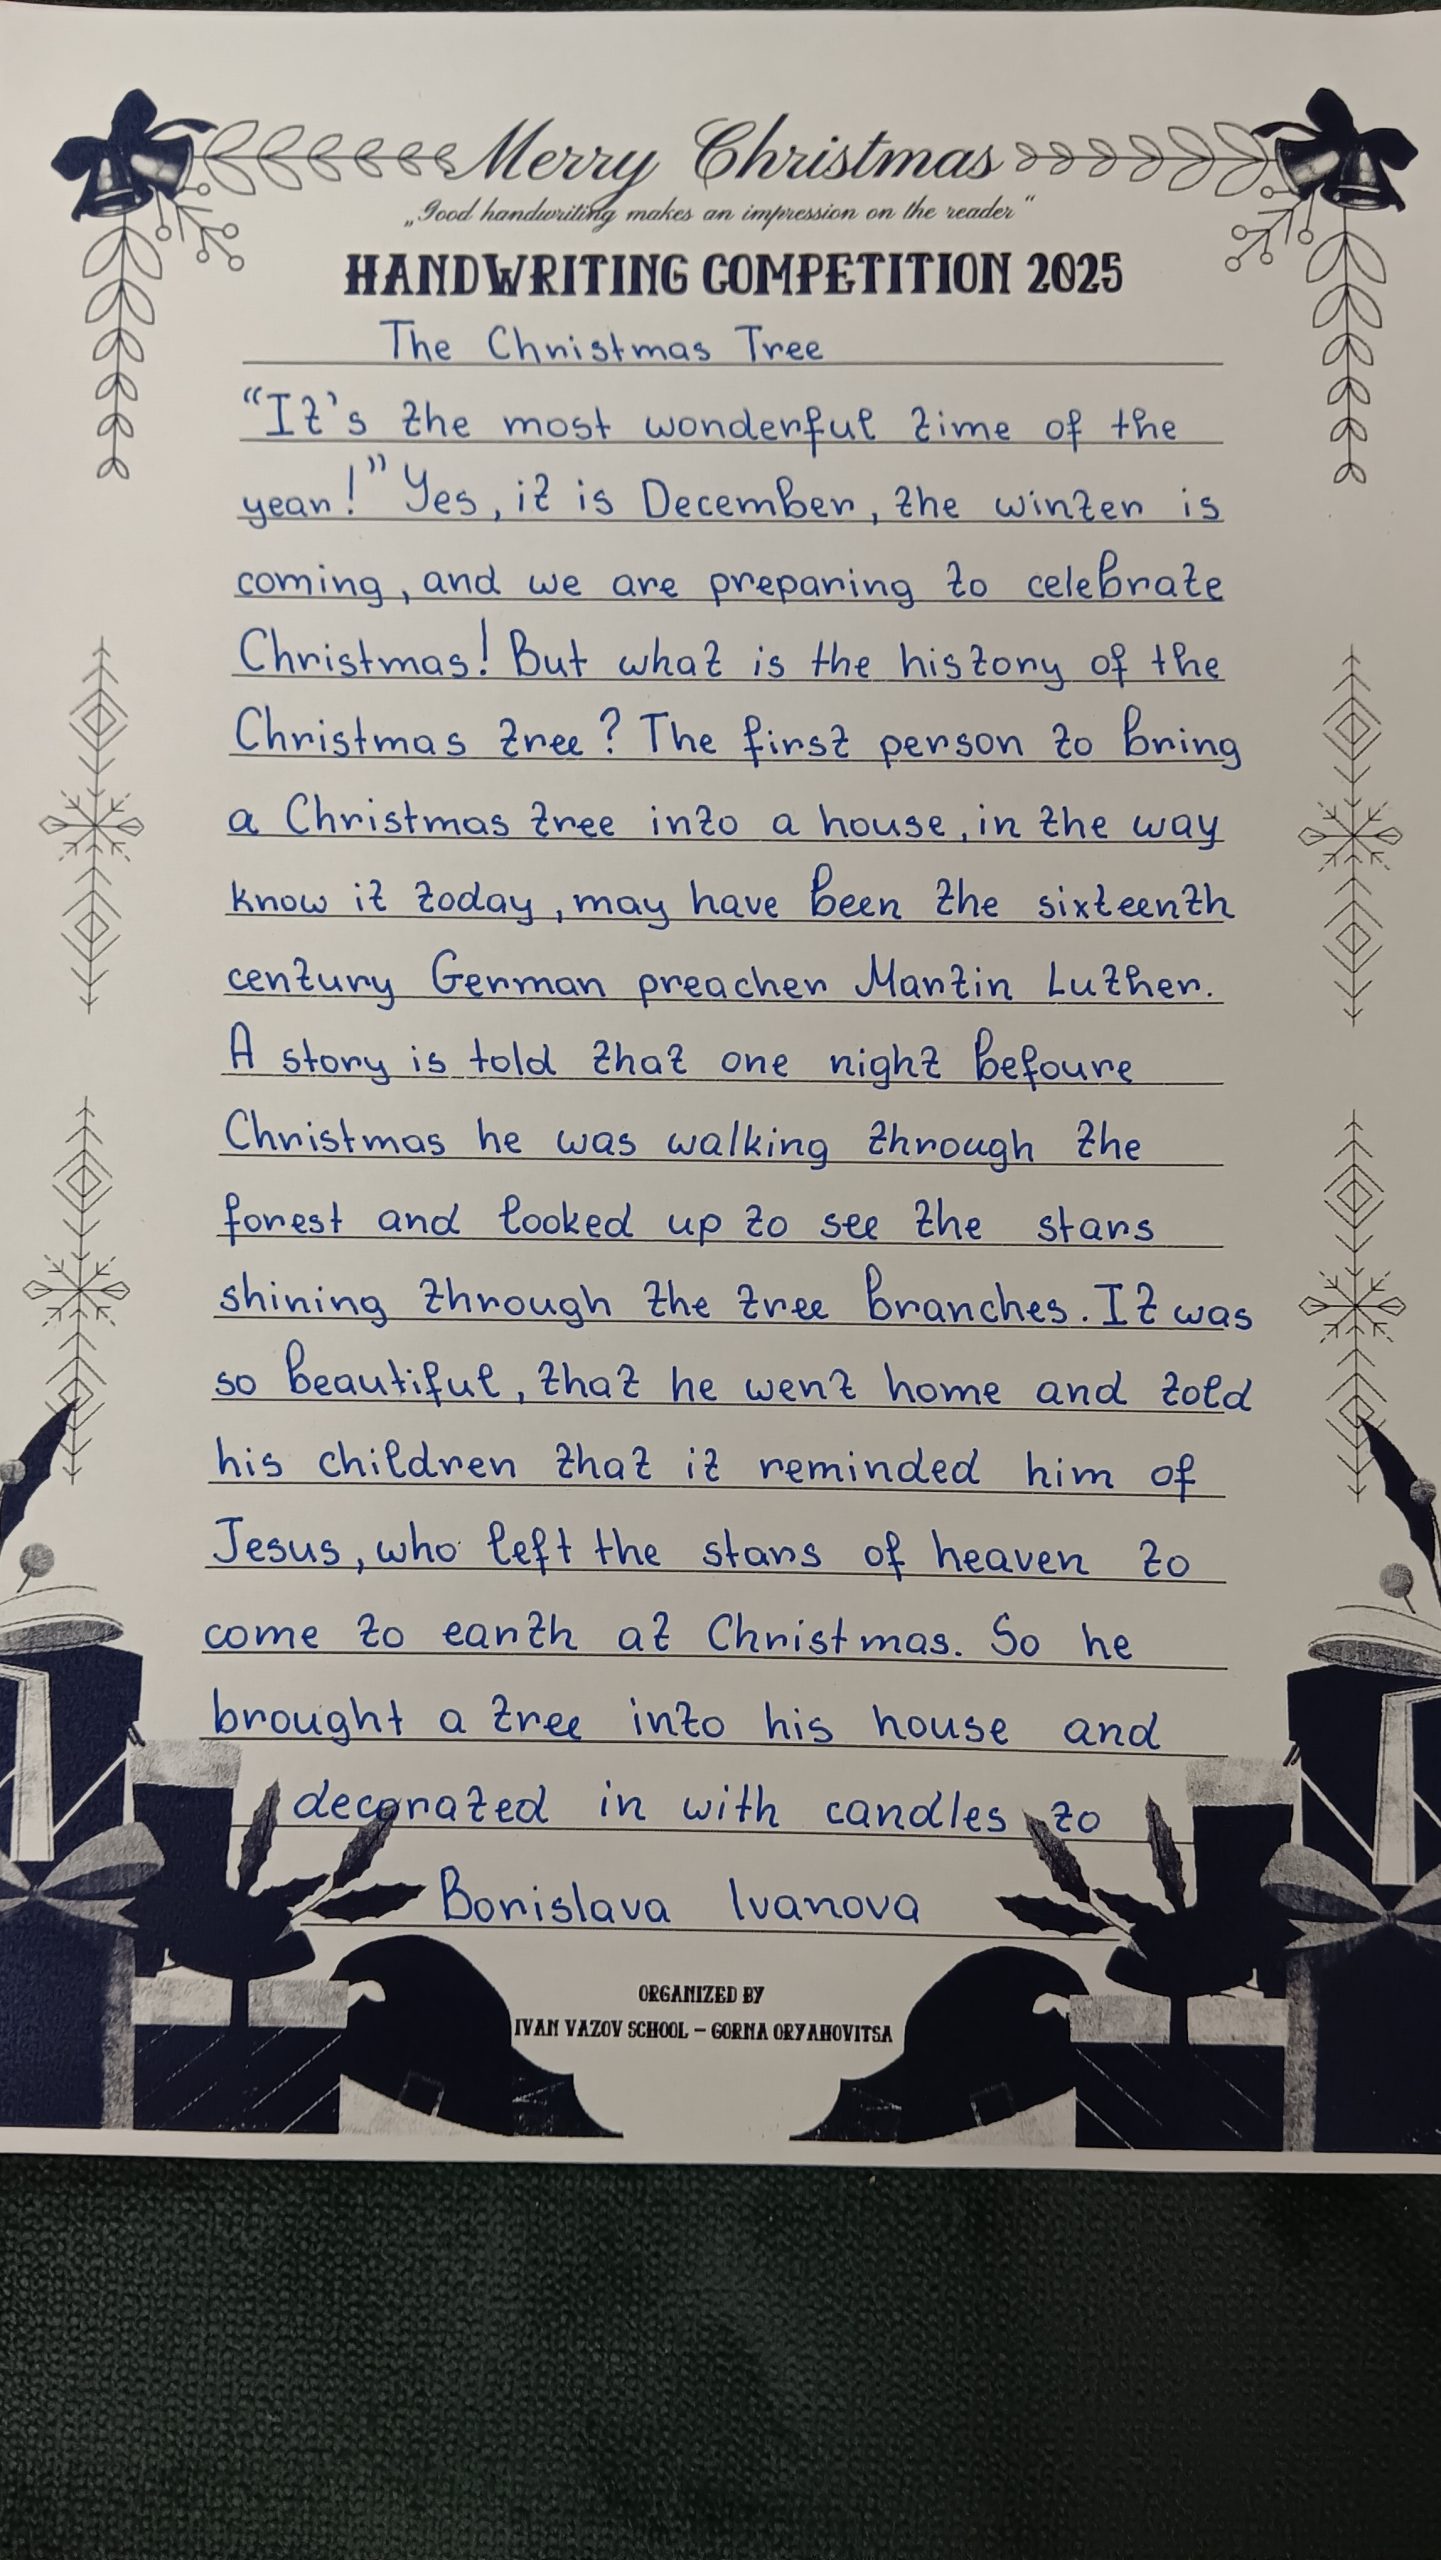 Merry Christmas
„Good handwriting makes an impression on the reader“
HANDWRITING COMPETITION 2025
The Christmas Tree
“It's the most wonderful time of the
year!” Yes, it is December, the winter is
coming, and we are preparing to celebrate
Christmas! But what is the history of the
Christmas tree? The first person to bring
a Christmas tree into a house, in the way
know it today, may have been the sixteenth
century German preacher Martin Luther.
A story is told that one night befoure
Christmas he was walking through the
forest and looked up to see the stars
shining through the tree branches. It was
so beautiful, that he went home and told
his children that it reminded him of
Jesus, who left the stars of heaven to
come to earth at Christmas. So he
brought a tree into his house and
decorated in with candles to
Borislava Ivanova
ORGANIZED BY
IVAN VAZOV SCHOOL – GORNA ORYAHOVITSA